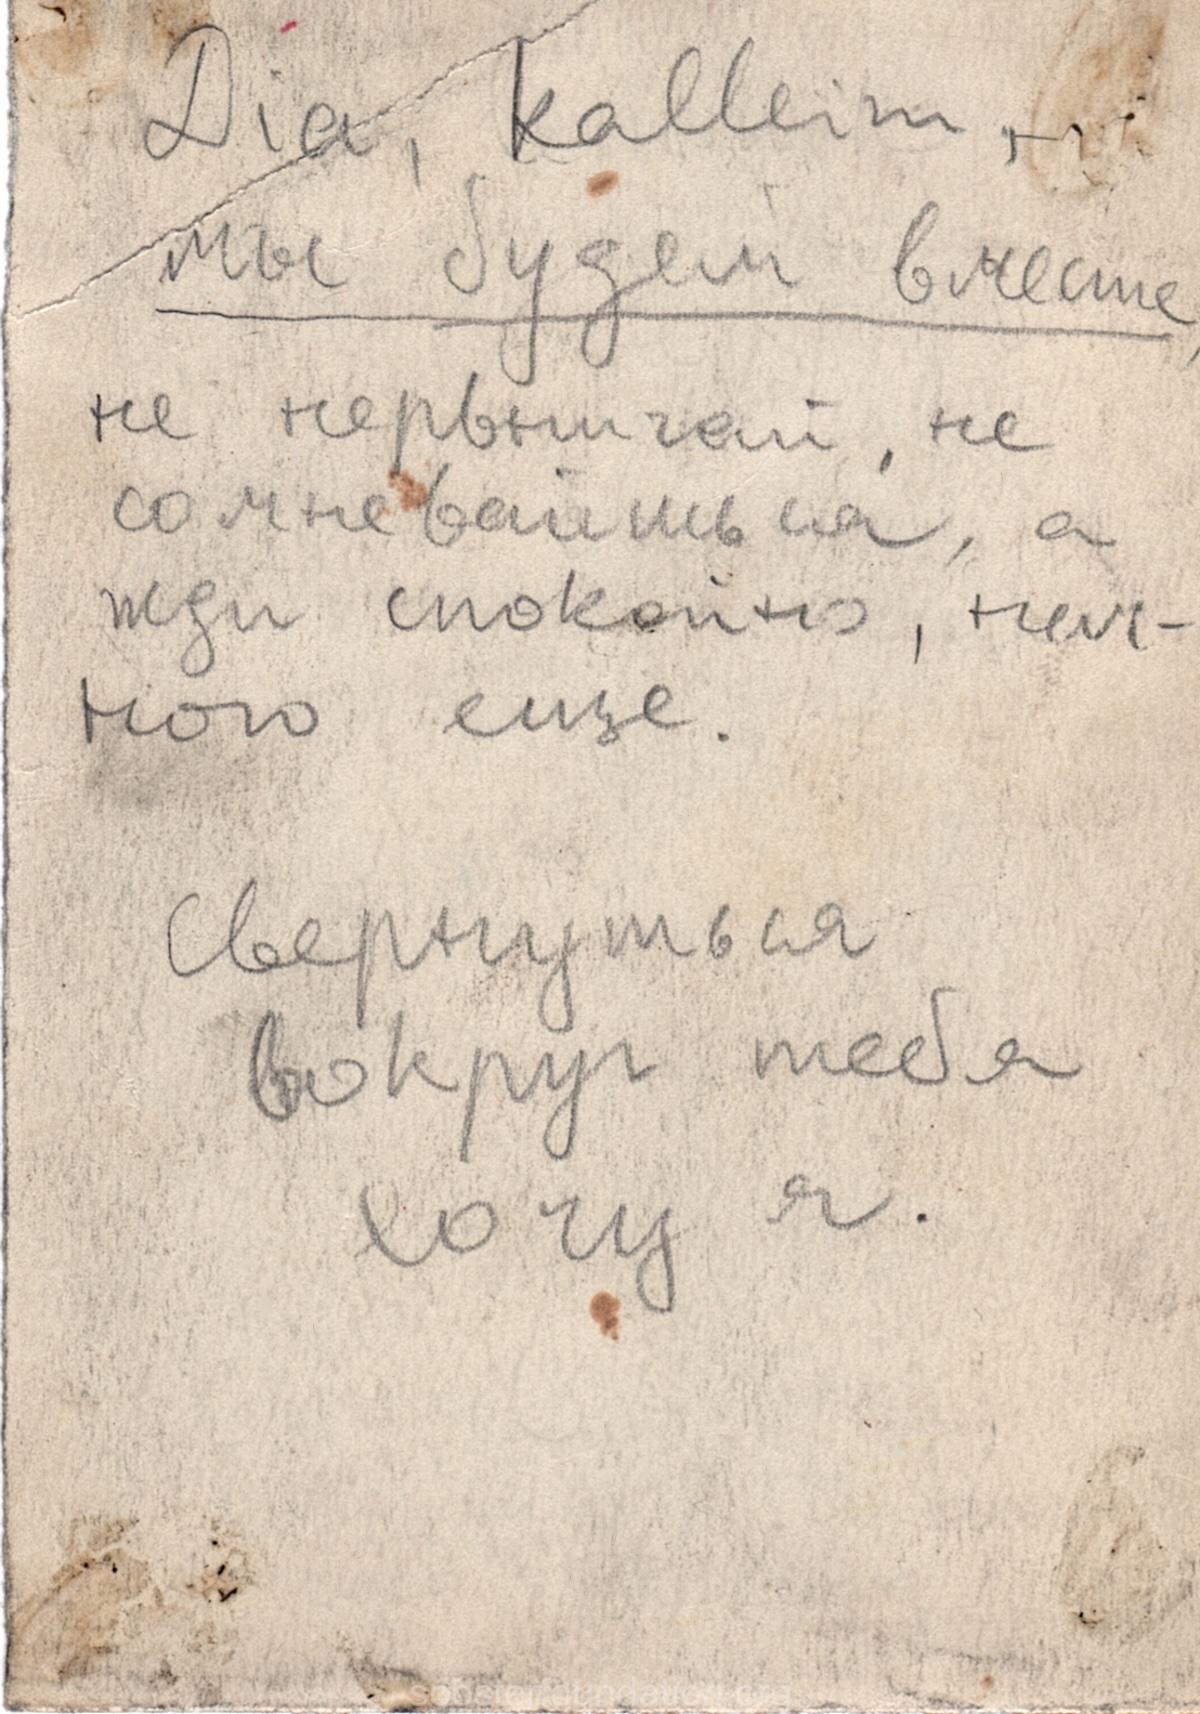 Dia, kallim,
мы будем вместе,
не нервничай, не
сомневайться, а
жди спокойно, нем-
ного еще.
Свернуться
вокруг тебя
хочу я.